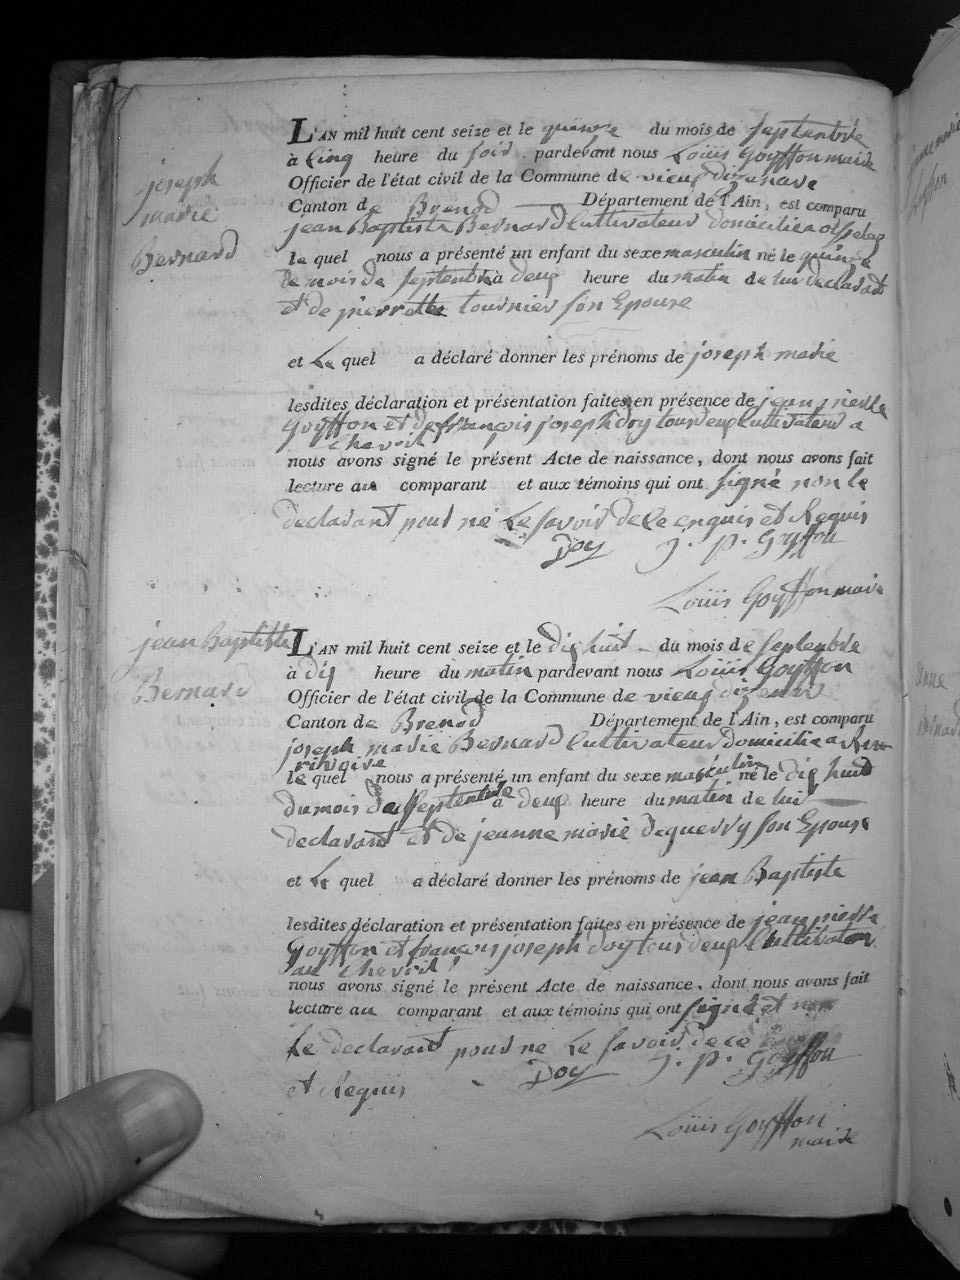 joseph
marie
Bernard
L'AN mil huit cent seize et le quinze du mois de septembre
à cinq heure du soir pardevant nous Loüis Goyffon maire
Officier de l'état civil de la Commune de vieux dizenave
Canton de Brenod Département de l'Ain, est comparu
jean Baptiste Bernard Cultivateur domicilié a
le quel nous a présenté un enfant du sexe masculin né le quinze
du mois de septembre à deux heure du matin de lui declarant
et de pierrette tournier son Epouse
et Le quel a déclaré donner les prénoms de joseph marie
lesdites déclaration et présentation faites en présence de jean pierre
Goyffon et de françois joseph doy tous deux Cultivateurs a
Chevril
nous avons signé le présent Acte de naissance, dont nous avons fait
lecture au comparant et aux témoins qui ont signé non le
declarant pour ne Le savoir de ce enquis et Requis
Doy j. p. Goyffon
Loüis Goyffon maire
jean Baptiste
Bernard
L'AN mil huit cent seize et le dix huit du mois de septembre
à dix heure du matin pardevant nous Loüis Goyffon
Officier de l'état civil de la Commune de vieux dizenave
Canton de Brenod Département de l'Ain, est comparu
joseph marie Bernard Cultivateur domicilié a
le quel nous a présenté un enfant du sexe masculin né le dix huit
du mois de septembre à deux heure du matin de lui
declarant et de jeanne marie deguerry son Epouse
et Le quel a déclaré donner les prénoms de jean Baptiste
lesdites déclaration et présentation faites en présence de jean pierre
Goyffon et françois joseph doy tous deux Cultivateur
au Chevril
nous avons signé le présent Acte de naissance, dont nous avons fait
lecture au comparant et aux témoins qui ont signé et non
Le declarant pour ne Le savoir de ce
et Requis Doy j. p. Goyffon
Loüis Goyffon
maire